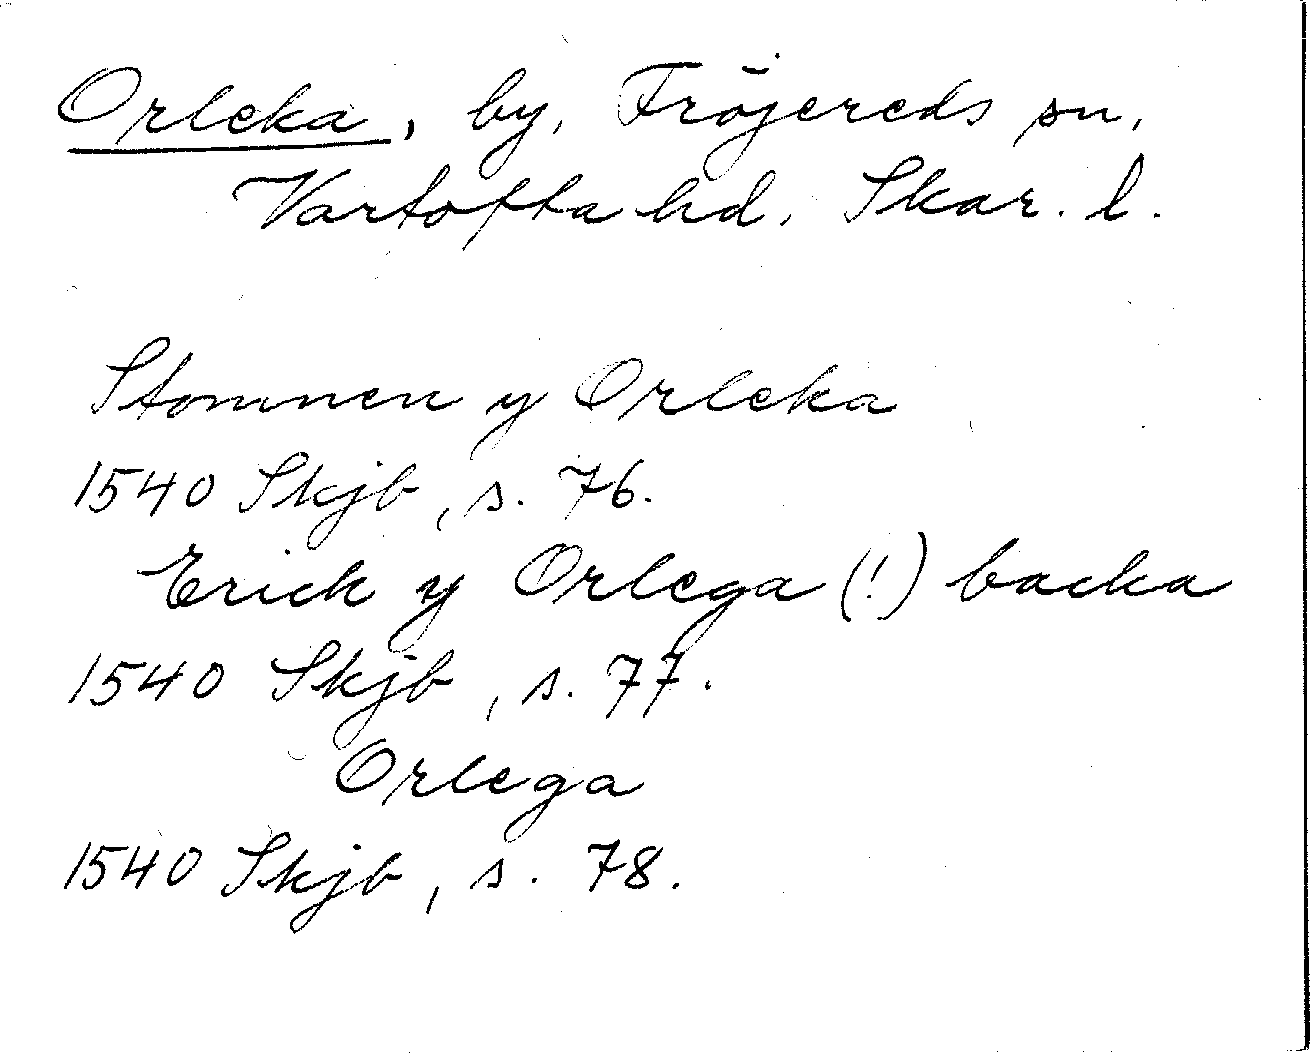 Orleka, by, Fröjereds sn,
Vartofta hd. Skar. l.
Stommen y Orleka
1540 Skjb, s. 76.
Erick y Orlega (!) backa
1540 Skjb, s. 77.
Orlega
1540 Skjb, s. 78.